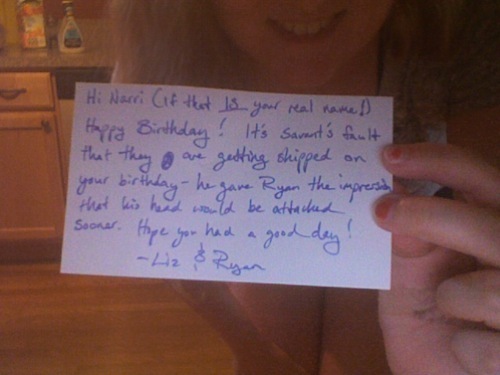 Hi Narri (if that is your real name!)
Happy Birthday! It's Savant's fault
that they are getting shipped on
your birthday - he gave Ryan the impression
that his head would be attached
sooner. Hope you had a good day!
- Liz & Ryan